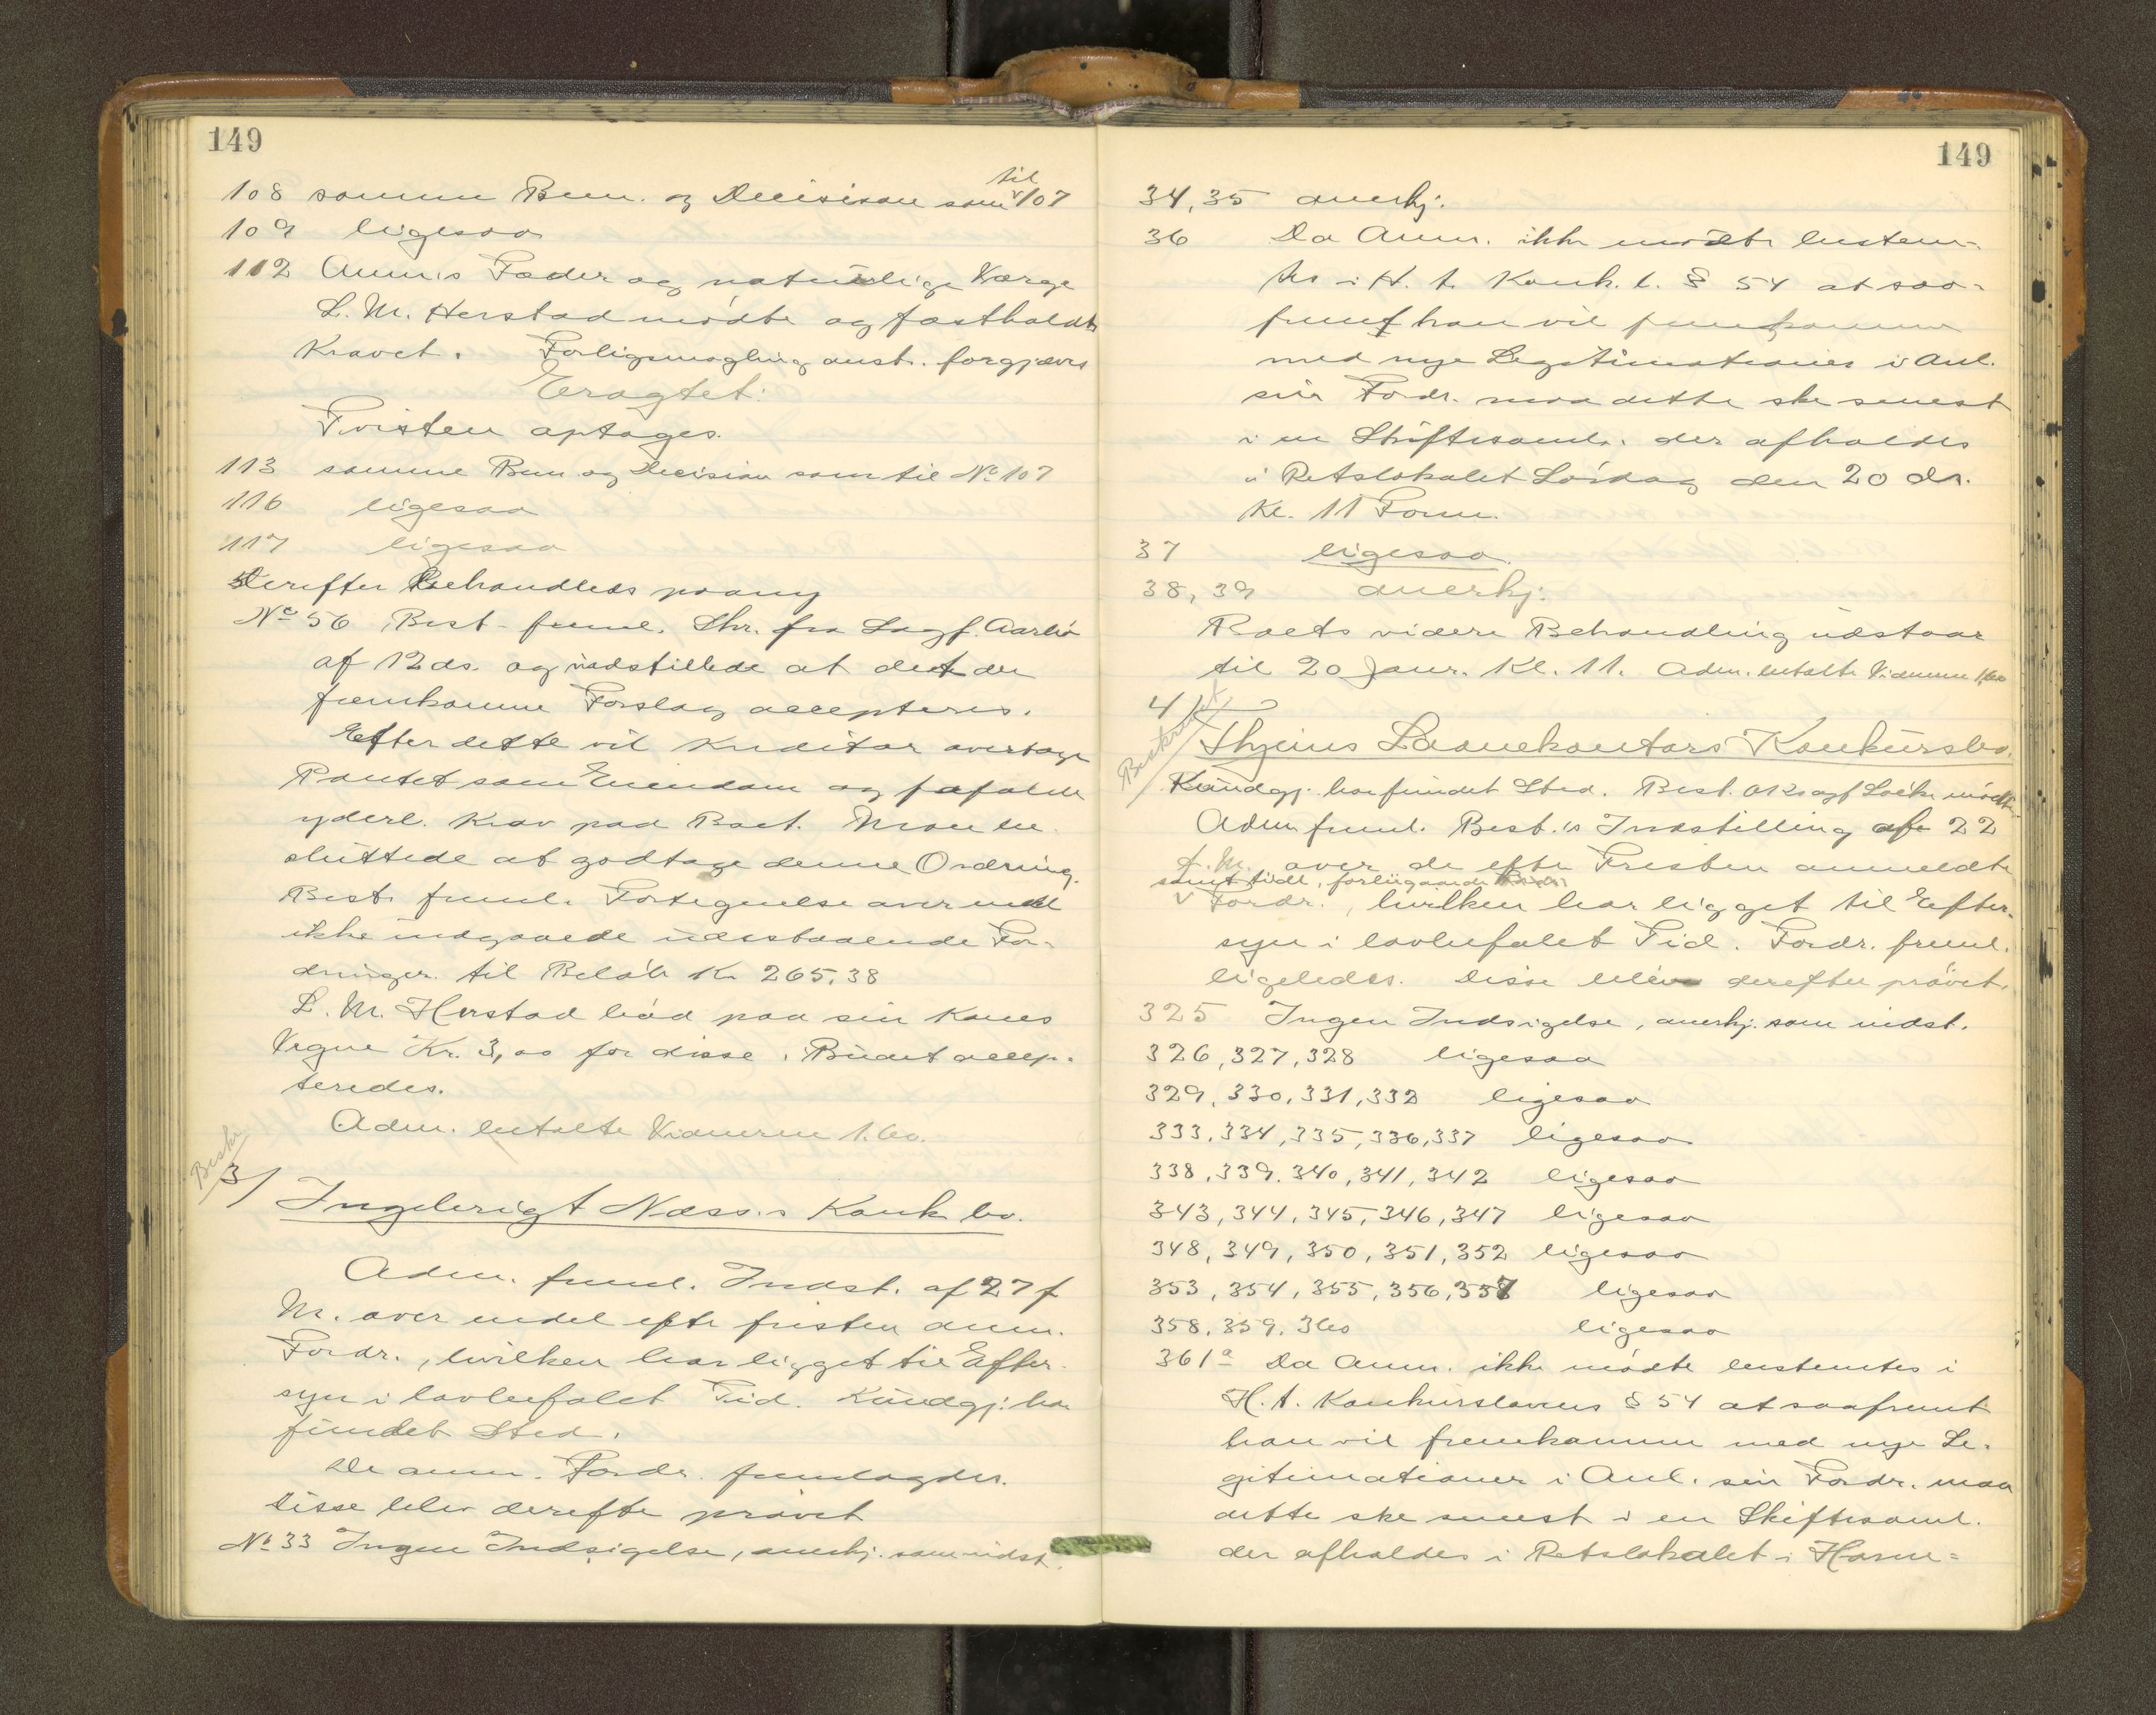 149
108 samme Bem. og Decision som til 107
109 ligesaa
112 Anm.s Fader og naturlige Værge
L. M. Herstad mødte og fastholdt
Kravet. Forligsmægling anst. forgjæves
Eragtet:
Tvisten optages.
113 samme Bem og Decision som til No 107
116 ligesaa
117 ligesaa
Derefter behandledes paany
No 56 Best. freml. Skr. fra Sagf. Aarlie
af 12 ds. og indstillede at det der
fremkomne Forslag accepteres.
Efter dette vil Kreditor overtage
Pantet som Eiendom og frafalde
yderl. Krav paa Boet. Man be
sluttede at godtage denne Ordning.
Best. freml. Fortegnelse over endel
ikke indgaaede udestaaende For-
dringer til Beløb Kr. 265.38
L. M. Herstad bød paa sin Kones
Vegne Kr. 3,00 for disse. Budet accep-
teredes.
Adm. betalte Vidnerne 1.60.
Beskr
3/ Ingebrigt Næss.s Konk bo.
Adm. freml. Indst. af 27 f
M. over endel efter fristen anm.
Fordr., hvilken har ligget til Efter-
syn i lovbefalet Tid. Kundgj. har
fundet Sted.
De anm. Fordr. fremlagdes.
Disse blev derefter prøvet
No 33 Ingen Indsigelse, anerkj. som indst.
149
34, 35 anerkj.
36 Da Anm. ikke mødte bestem-
tes i H. t. Konk. l. § 54 at saa-
fremt han vil fremkomme
med nye Legitimationer i Anl.
sin Fordr. maa dette ske senest
i en Skiftesaml. der afholdes
i Retslokalet Lørdag den 20 ds.
Kl. 11 Form.
37 ligesaa
38, 39 anerkj.
Boets videre Behandling udstaar
til 20 Janr. Kl. 11. Adm. betalte Vidnerne 1,60
4/
Beskrevet
Thyeius Laanekontors Konkursbo.
Kundgj. har fundet Sted. Best. OR sagf Løcke mødte
Adm freml. Best.s Indstilling af 22
f. M. over de efter Fristen anmeldte
samt tidl. foreliggende
Fordr., hvilken har ligget til Efter-
syn i lovbefalet Tid. Fordr. freml.
ligeledes. Disse blev derefter prøvet.
325 Ingen Indsigelse, anerkj. som indst.
326, 327, 328 ligesaa
329, 330, 331, 332 ligesaa
333, 334, 335, 336, 337 ligesaa
338, 339, 340, 341, 342 ligesaa
343, 344, 345, 346, 347 ligesaa
348, 349, 350, 351, 352 ligesaa
353, 354, 355, 356, 357 ligesaa
358, 359, 360 ligesaa
361a Da Anm. ikke mødte bestemtes i
H. t. Konkurslovens § 54 at saafremt
han vil fremkomme med nye Le-
gitimationer i Anl. sin Fordr. maa
dette ske senest i en Skiftesaml.
der afholdes i Retslokalet i Hom=